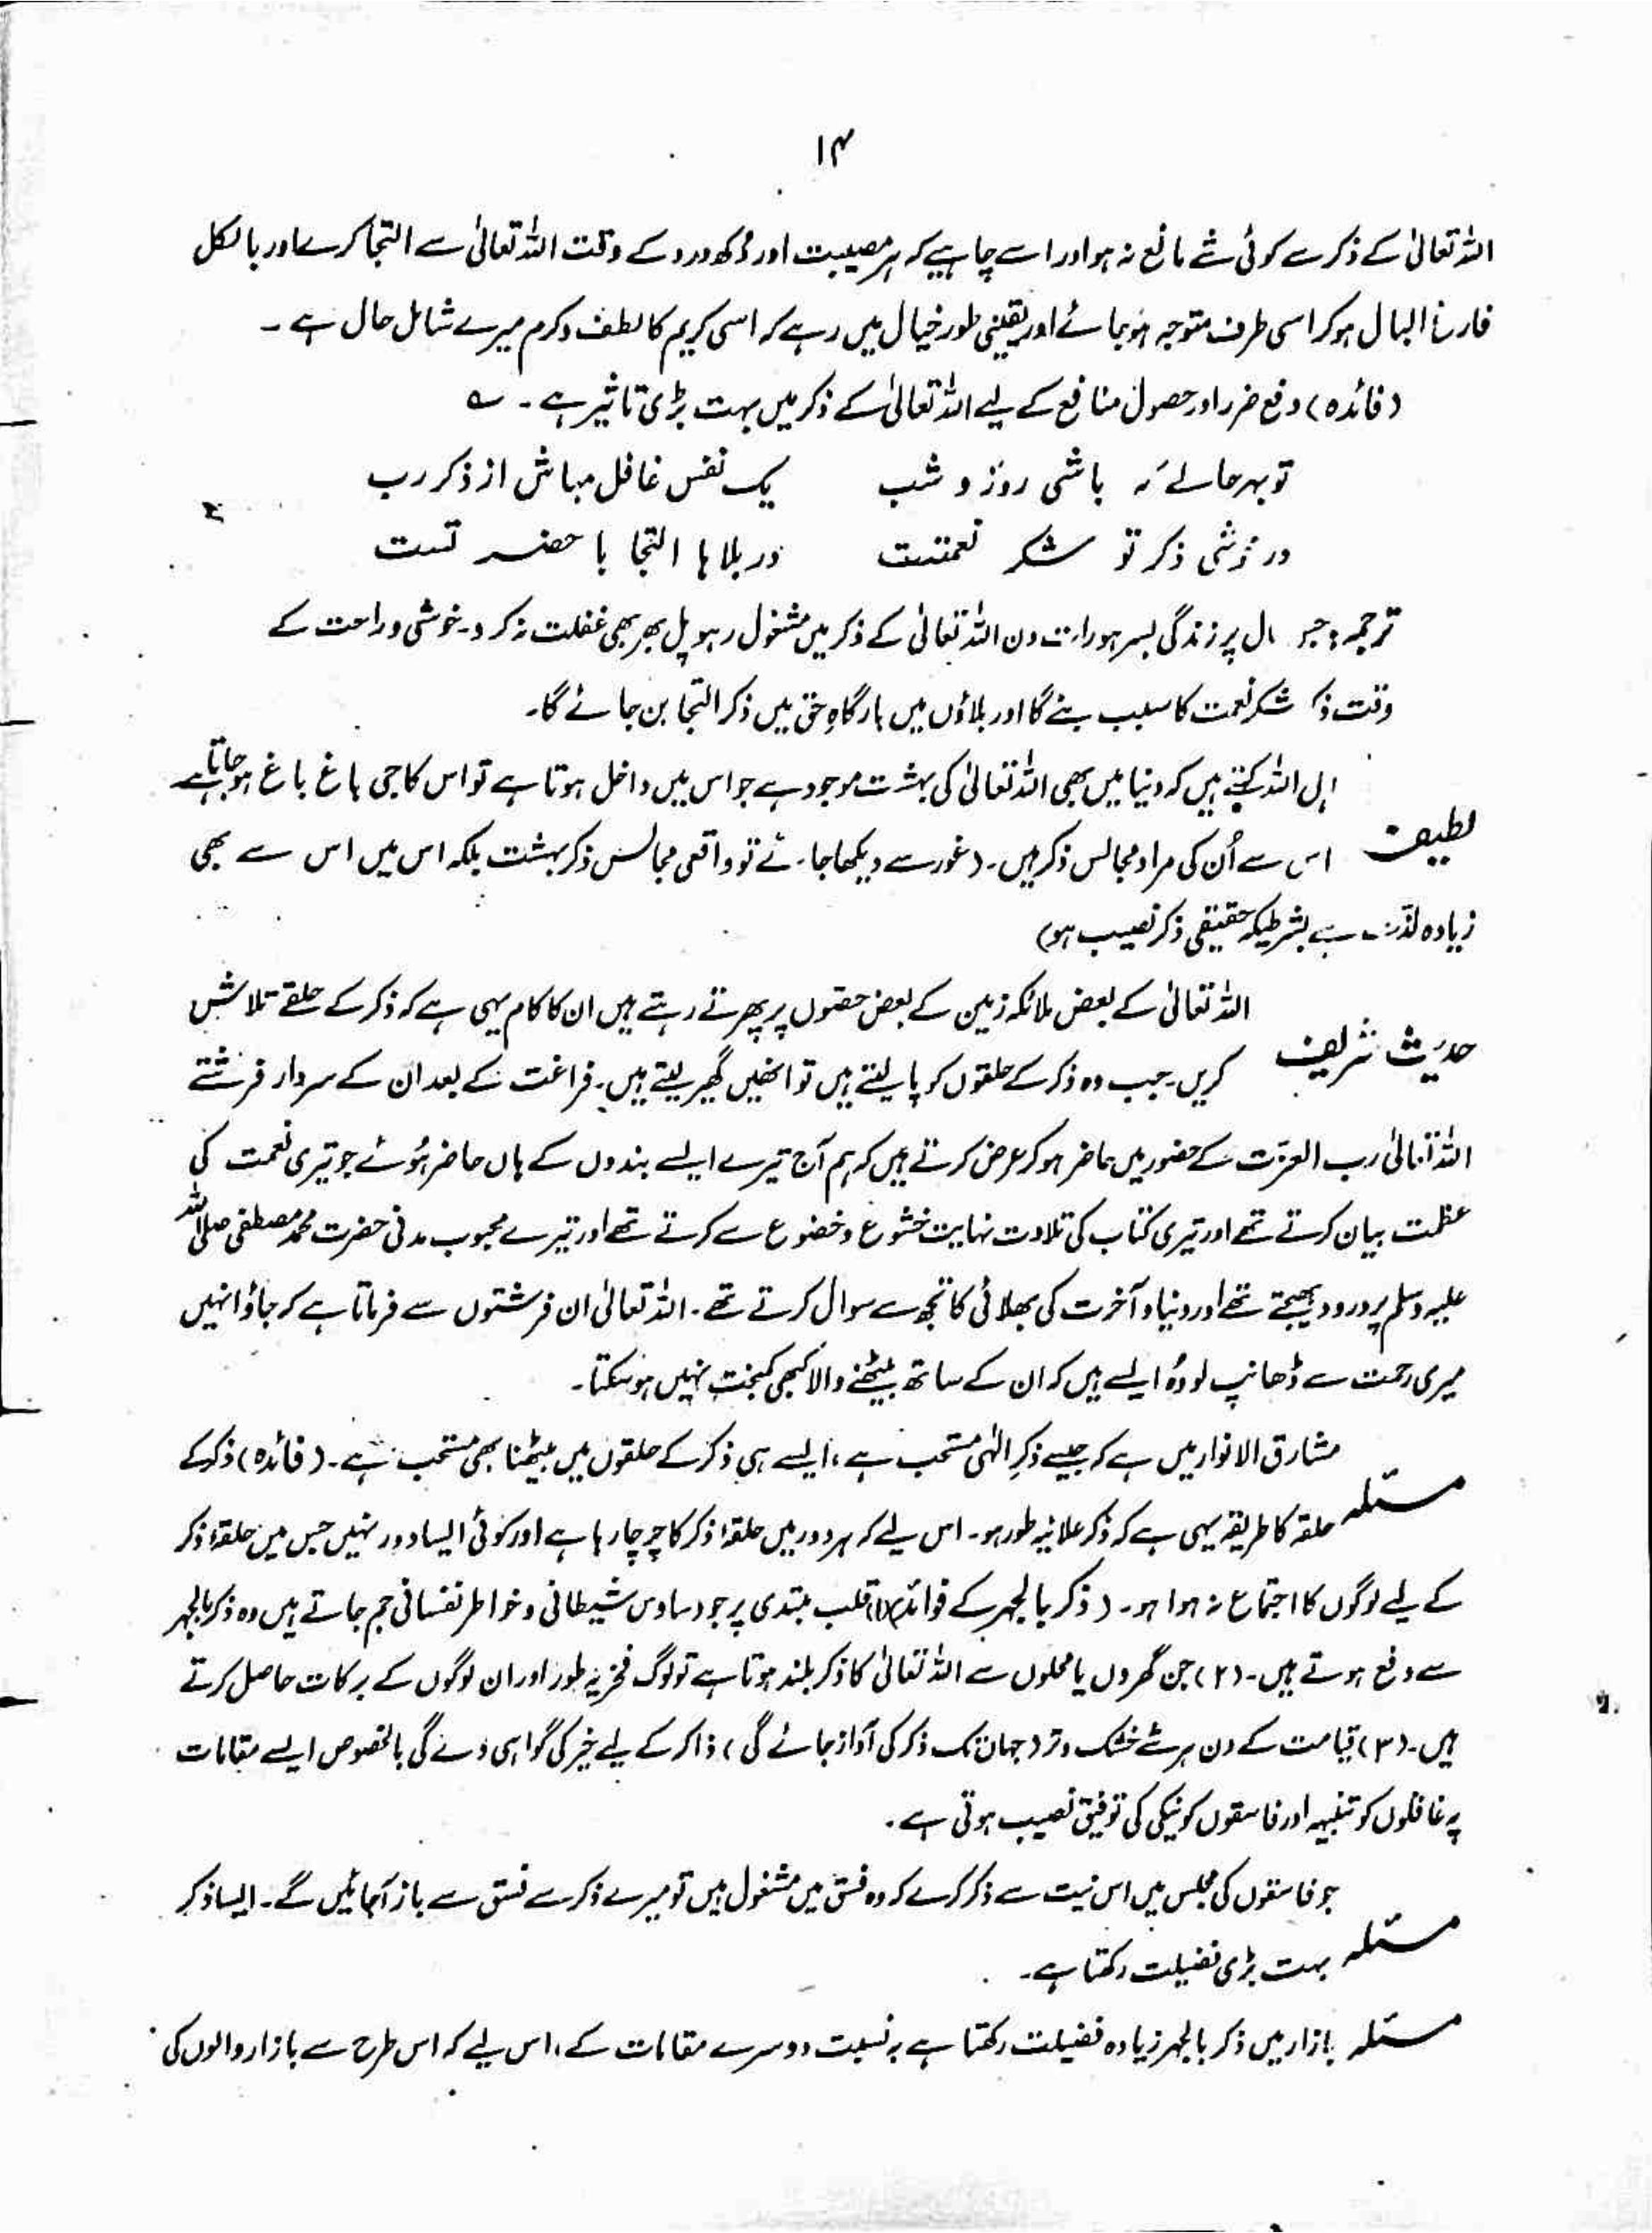 ۱۴
اللہ تعالیٰ کے ذکر سے کوئی شے مانع نہ ہو اور اسے چاہیے کہ ہر مصیبت اور دُکھ درد کے وقت اللہ تعالیٰ سے التجا کرے اور بالکل
فارغ البال ہو کر اسی طرف متوجہ ہو جائے اور یقینی طور خیال میں رہے کہ اسی کریم کا لطف و کرم میرے شامل حال ہے ۔
(فائدہ) دفع ضرر اور حصول منافع کے لیے اللہ تعالیٰ کے ذکر میں بہت بڑی تاثیر ہے ۔ ؎
تو بہر حالے کہ باشی روز و شب یک نفس غافل مباش از ذکر رب
در خوشی ذکر تو شکر نعمتست در بلاہا التجا با حضرتست
ترجمہ : جس حال پر زندگی بسر ہو رات دن اللہ تعالیٰ کے ذکر میں مشغول رہو پل بھر بھی غفلت نہ کرو۔ خوشی و راحت کے
وقت ذکر شکر نعمت کا سبب بنے گا اور بلاؤں میں بارگاہِ حق میں ذکر التجا بن جائے گا۔
اہل اللہ کہتے ہیں کہ دنیا میں بھی اللہ تعالیٰ کی بہشت موجود ہے جو اس میں داخل ہوتا ہے تو اس کا جی باغ باغ ہو جاتا ہے
لطیفہ اس سے اُن کی مراد مجالس ذکر ہیں۔ (غور سے دیکھا جائے تو واقعی مجالس ذکر بہشت بلکہ اس میں اس سے بھی
زیادہ لذت ہے بشرطیکہ حقیقی ذکر نصیب ہو)
اللہ تعالیٰ کے بعض ملائکہ زمین کے بعض حصّوں پر پھرتے رہتے ہیں ان کا کام یہی ہے کہ ذکر کے حلقے تلاش
حدیث شریف کریں۔ جب وہ ذکر کے حلقوں کو پالیتے ہیں تو انھیں گھیر لیتے ہیں۔ فراغت کے بعد ان کے سردار فرشتے
اللہ تعالیٰ رب العزت کے حضور میں حاضر ہو کر عرض کرتے ہیں کہ ہم آج تیرے ایسے بندوں کے ہاں حاضر ہُوئے جو تیری نعمت کی
عظمت بیان کرتے تھے اور تیری کتاب کی تلاوت نہایت خشوع و خضوع سے کرتے تھے اور تیرے محبوب مدنی حضرت محمد مصطفی صلی اللہ
علیہ وسلم پر درود بھیجتے تھے اور دنیا و آخرت کی بھلائی کا تجھ سے سوال کرتے تھے ۔ اللہ تعالیٰ ان فرشتوں سے فرماتا ہے کہ جاؤ انہیں
میری رحمت سے ڈھانپ لو وُہ ایسے ہیں کہ ان کے ساتھ بیٹھنے والا کبھی کمبخت نہیں ہو سکتا۔
مشارق الانوار میں ہے کہ جیسے ذکرِ الٰہی مستحب ہے ، ایسے ہی ذکر کے حلقوں میں بیٹھنا بھی مستحب ہے ۔ (فائدہ) ذکر کے
مسئلہ حلقہ کا طریقہ یہی ہے کہ ذکر علانیہ طور ہو۔ اس لیے کہ ہر دور میں حلقۂ ذکر کا چرچا رہا ہے اور کوئی ایسا دور نہیں جس میں حلقۂ ذکر
کے لیے لوگوں کا اجتماع نہ ہوا ہو۔ (ذکر بالجہر کے فوائد) (۱) قلب مبتدی پر جو وساوس شیطانی و خواطر نفسانی جم جاتے ہیں وہ ذکر بالجہر
سے دفع ہوتے ہیں۔ (۲) جن گھروں یا محلوں سے اللہ تعالیٰ کا ذکر بلند ہوتا ہے تو لوگ فخریہ طور اور ان لوگوں کے برکات حاصل کرتے
ہیں۔ (۳) قیامت کے دن ہر شے خشک و تر (جہاں تک ذکر کی آواز جائے گی) ذاکر کے لیے خیر کی گواہی دے گی بالخصوص ایسے مقامات
پہ غافلوں کو تنبیہ اور فاسقوں کو نیکی کی توفیق نصیب ہوتی ہے ۔
جو فاسقوں کی مجلس میں اس نیت سے ذکر کرے کہ وہ فسق میں مشغول ہیں تو میرے ذکر سے فسق سے باز آجائیں گے۔ ایسا ذکر
مسئلہ بہت بڑی فضیلت رکھتا ہے۔
مسئلہ بازار میں ذکر بالجہر زیادہ فضیلت رکھتا ہے بہ نسبت دوسرے مقامات کے ، اس لیے کہ اس طرح سے بازار والوں کی